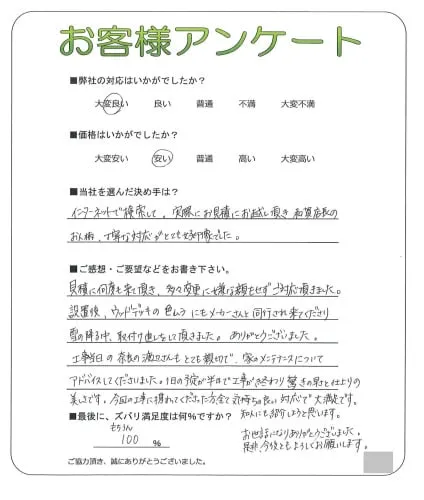 お客様アンケート
■弊社の対応はいかがでしたか？
大変良い 良い 普通 不満 大変不満
■価格はいかがでしたか？
大変安い 安い 普通 高い 大変高い
■当社を選んだ決め手は？
インターネットで検索して、実際にお見積にお越し頂き 店長の
お人柄、丁寧な対応がとても好印象でした。
■ご感想・ご要望などをお書き下さい。
見積に何度も来て頂き、多々変更に嫌な顔もせずご対応頂きました。
設置後、ウッドデッキの色ムラにもメーカーさんと同行され来てくださり
雪の降る中、取付け直しをして頂きました。ありがとうございました。
工事当日の 渡辺さんもとても親切で、家のメンテナンスについて
アドバイスしてくださいました。1日の予定が半日で工事が終わり驚きの早さと仕上りの
美しさです。今回の工事に携わてくださった方全て気持ちの良い対応で大満足です。
知人にも紹介しようと思います。
■最後に、ズバリ満足度は何％ですか？
もちろん
100 ％
お世話になりありがとうございました。
是非、今後ともよろしくお願いします。
ご協力頂き、誠にありがとうございました。